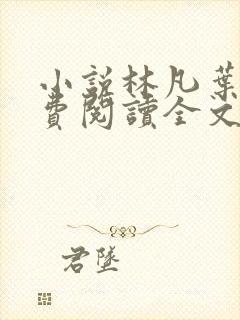 小說林凡葉
費閱讀全文
君墜